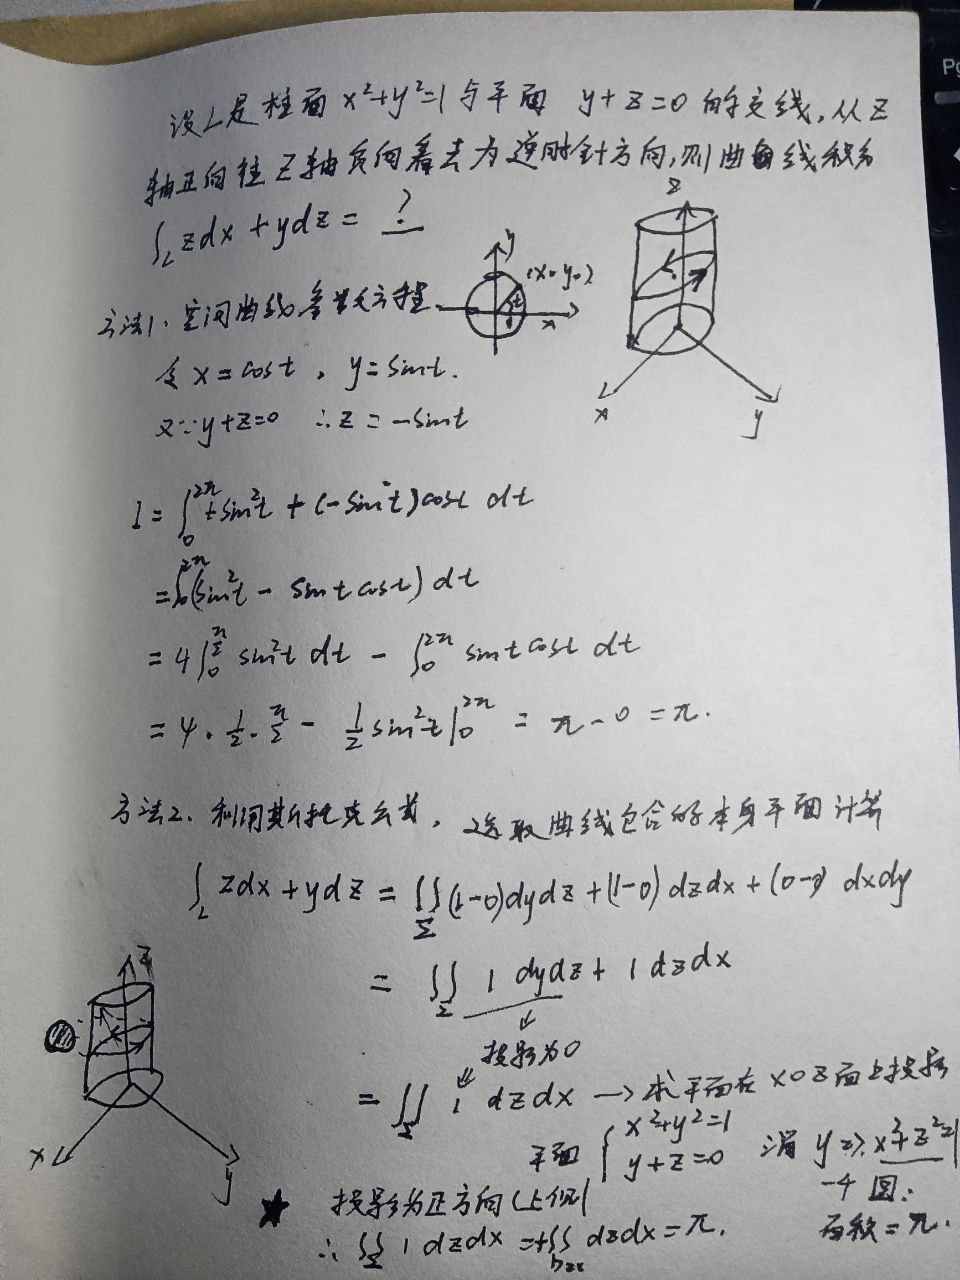 设L是柱面 x²+y²=1与平面 y+z=0的交线,从z
轴正向往z轴负向看去为逆时针方向,则曲线积分
∫_L zdx + ydz = ?
方法1. 空间曲线参数方程.
令 x = cost , y = sint.
又∵y+z=0 ∴z = -sint
I = ∫₀^{2π} +sin²t + (-sint)cost dt
= ∫₀^{2π}(sin²t - sint cost) dt
= 4∫₀^{π/2} sin²t dt - ∫₀^{2π} sint cost dt
= 4 · 1/2 · π/2 - 1/2 sin²t |₀^{2π} = π - 0 = π.
方法2. 利用斯托克公式, 选取曲线包含的本身平面计算
∫_L zdx + ydz = ∬_Σ (1-0)dydz + (1-0)dzdx + (0-0) dxdy
= ∬_Σ 1 dydz + 1 dzdx
投影为0
= ∬_Σ 1 dzdx → 求平面在 xoz面上投影
平面 { x²+y²=1
y+z=0 消 y => x²+z²=1
一个圆.
★ 投影为正方向(上侧) 面积=π.
∴ ∬_Σ 1 dzdx = +∬_{Dzx} dzdx = π.
z
x
y
y
x
z
x
y
Pg